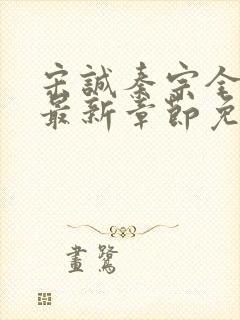 宋誠秦宗全
最新章節免
畫鷺